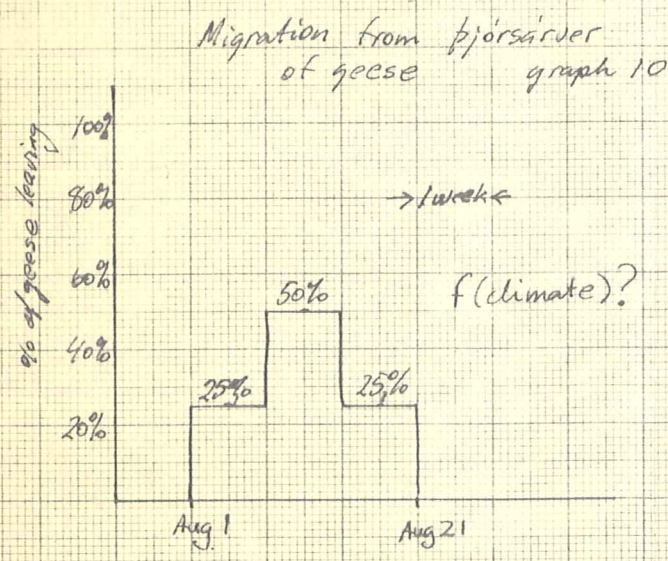 Migration from þjórsárver
of geese graph 10
% of geese leaving
100%
80%
→1 week←
60%
f(climate)?
50%
40%
25%
25%
20%
Aug 1
Aug 21